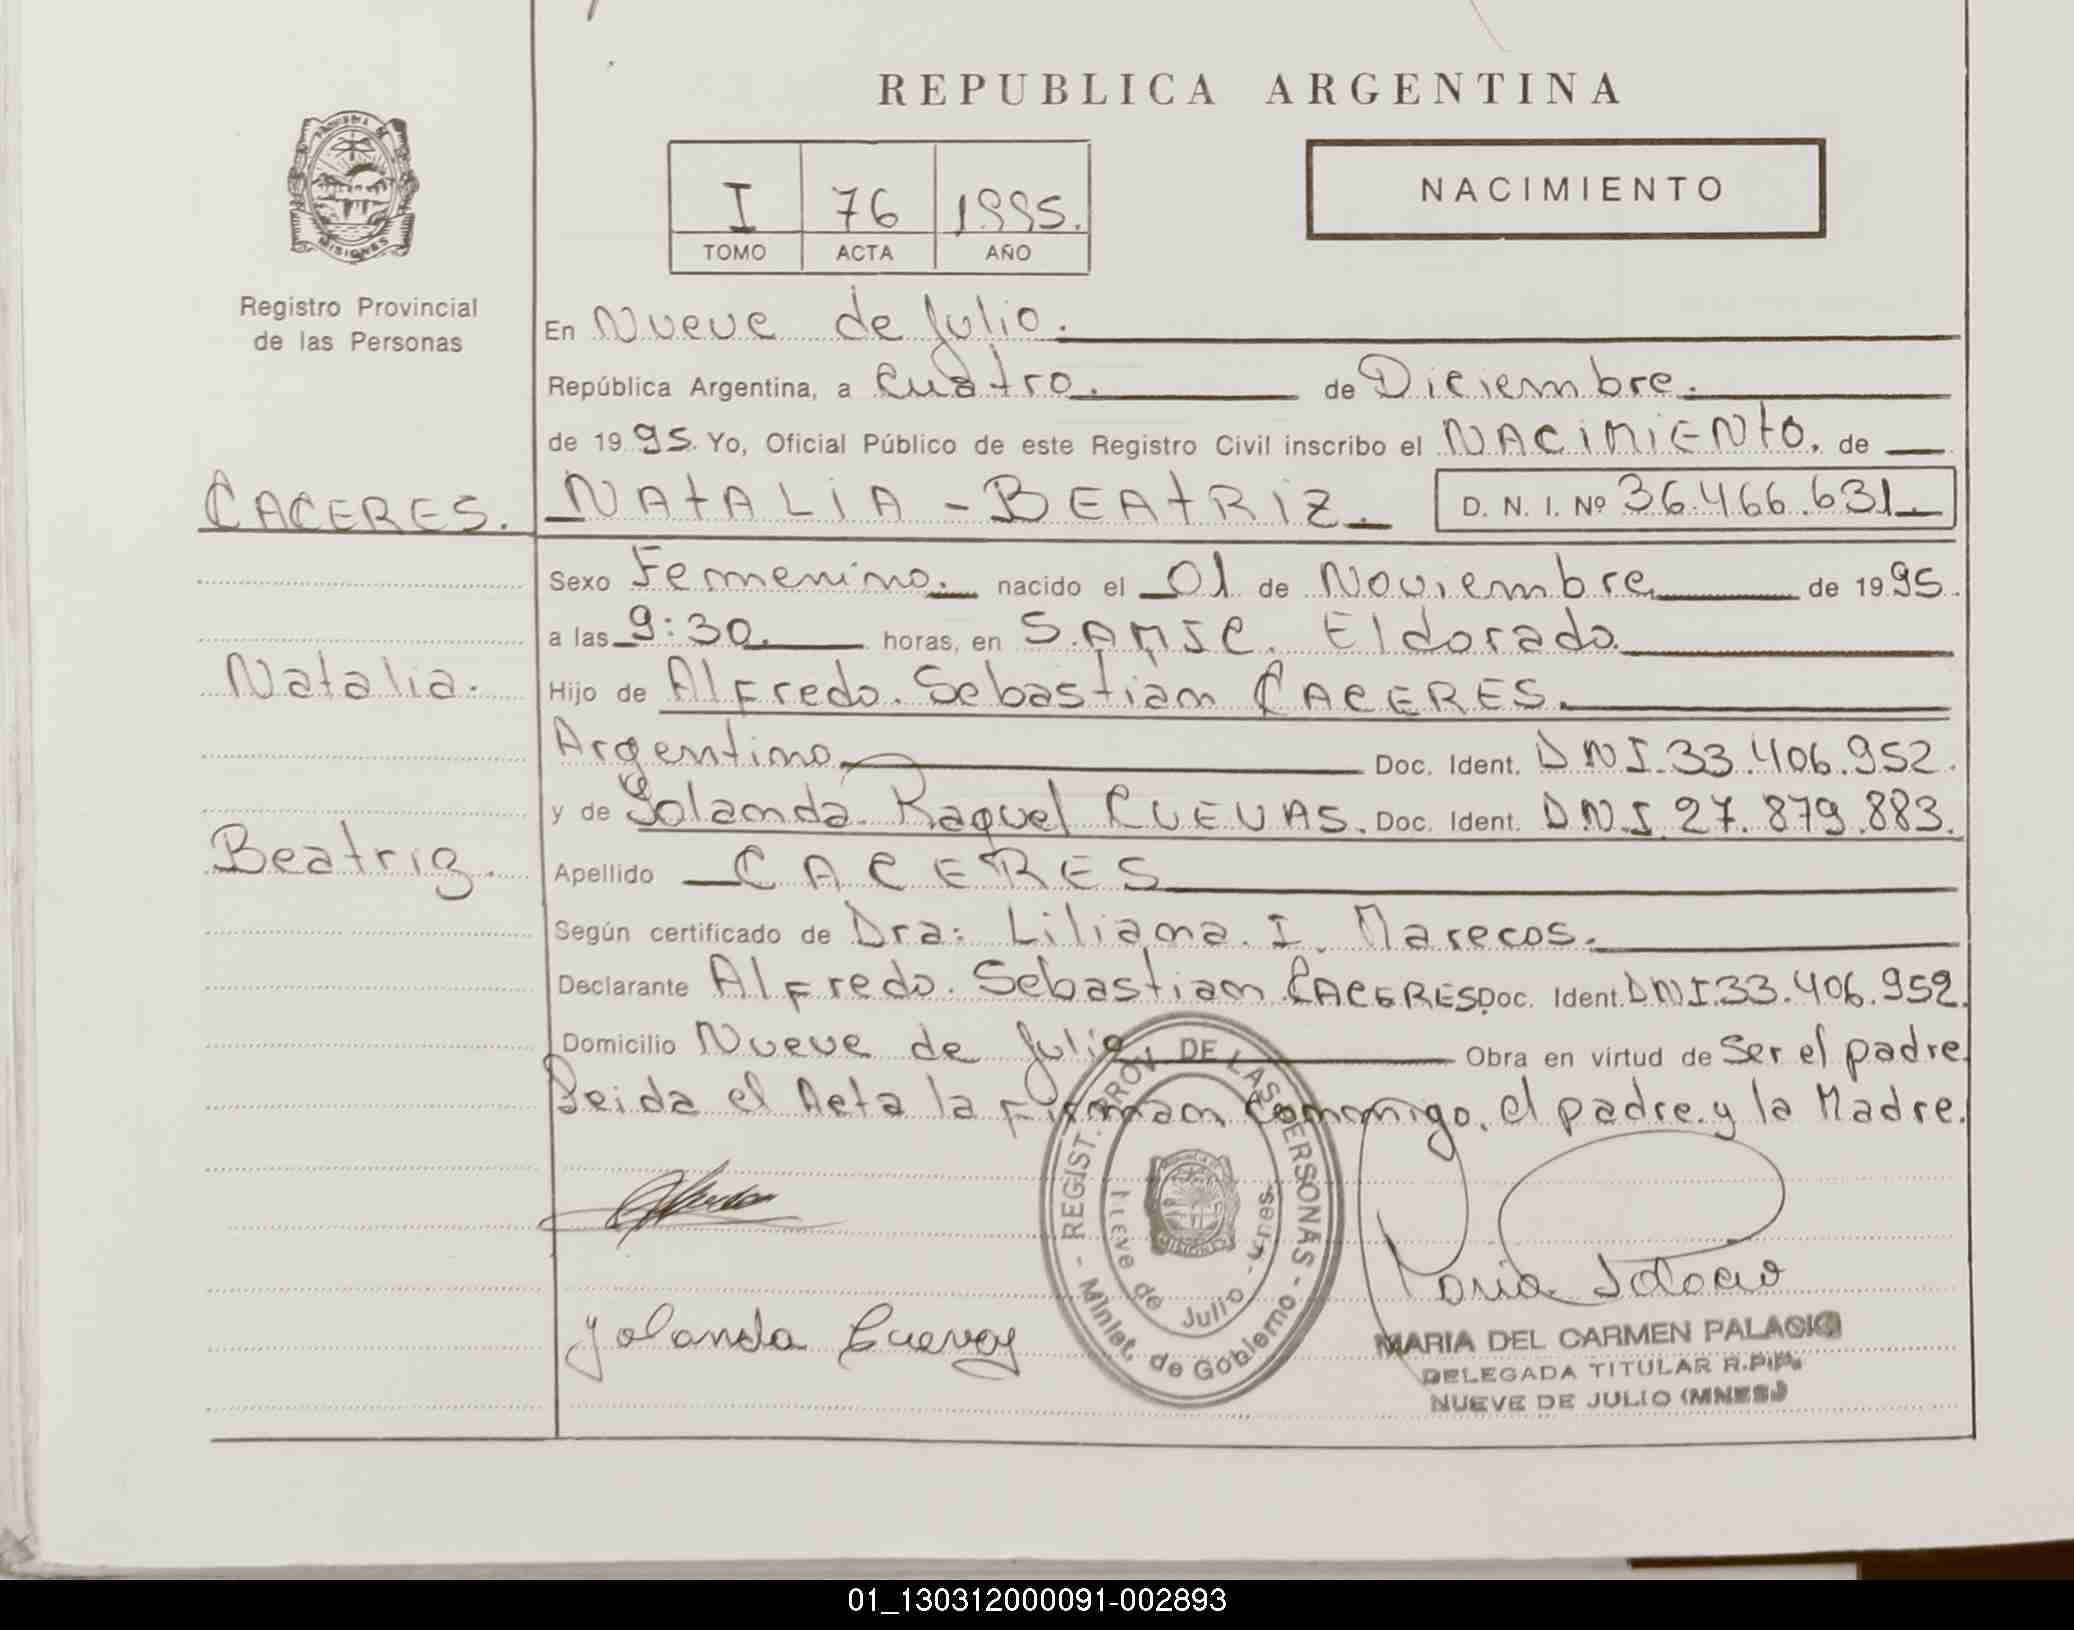 REPUBLICA ARGENTINA
PROVINCIA DE
MISIONES
Registro Provincial
de las Personas
I 76 1995.
TOMO ACTA AÑO
NACIMIENTO
En Nueve de Julio.
República Argentina, a Cuatro. de Diciembre.
de 1995. Yo, Oficial Público de este Registro Civil inscribo el NACIMIENTO. de
CACERES. NATALIA - BEATRIZ. D. N. I. Nº 36.466.631
Sexo Femenino. nacido el 01 de Noviembre de 1995.
a las 9:30. horas, en S.AMSC. Eldorado.
Natalia. Hijo de Alfredo. Sebastian CACERES.
Argentino Doc. Ident. DNI.33.406.952.
y de Yolanda Raquel CUEVAS. Doc. Ident. DNI.27.879.883.
Beatriz. Apellido CACERES
Según certificado de Dra: Liliana. I. Marecos.
Declarante Alfredo. Sebastian CACERES Doc. Ident. DNI.33.406.952.
Domicilio Nueve de Julio Obra en virtud de Ser el padre
Leida el Acta la Firman Conmigo. el padre. y la Madre.
REGIST. PROV. DE LAS PERSONAS - Minist. de Gobierno -
Nueve de Julio - Mnes.
MISIONES
Yolanda Cuevas
Maria Palacio
MARIA DEL CARMEN PALACIO
DELEGADA TITULAR R.P.P.
NUEVE DE JULIO (MNES.)
01_130312000091-002893